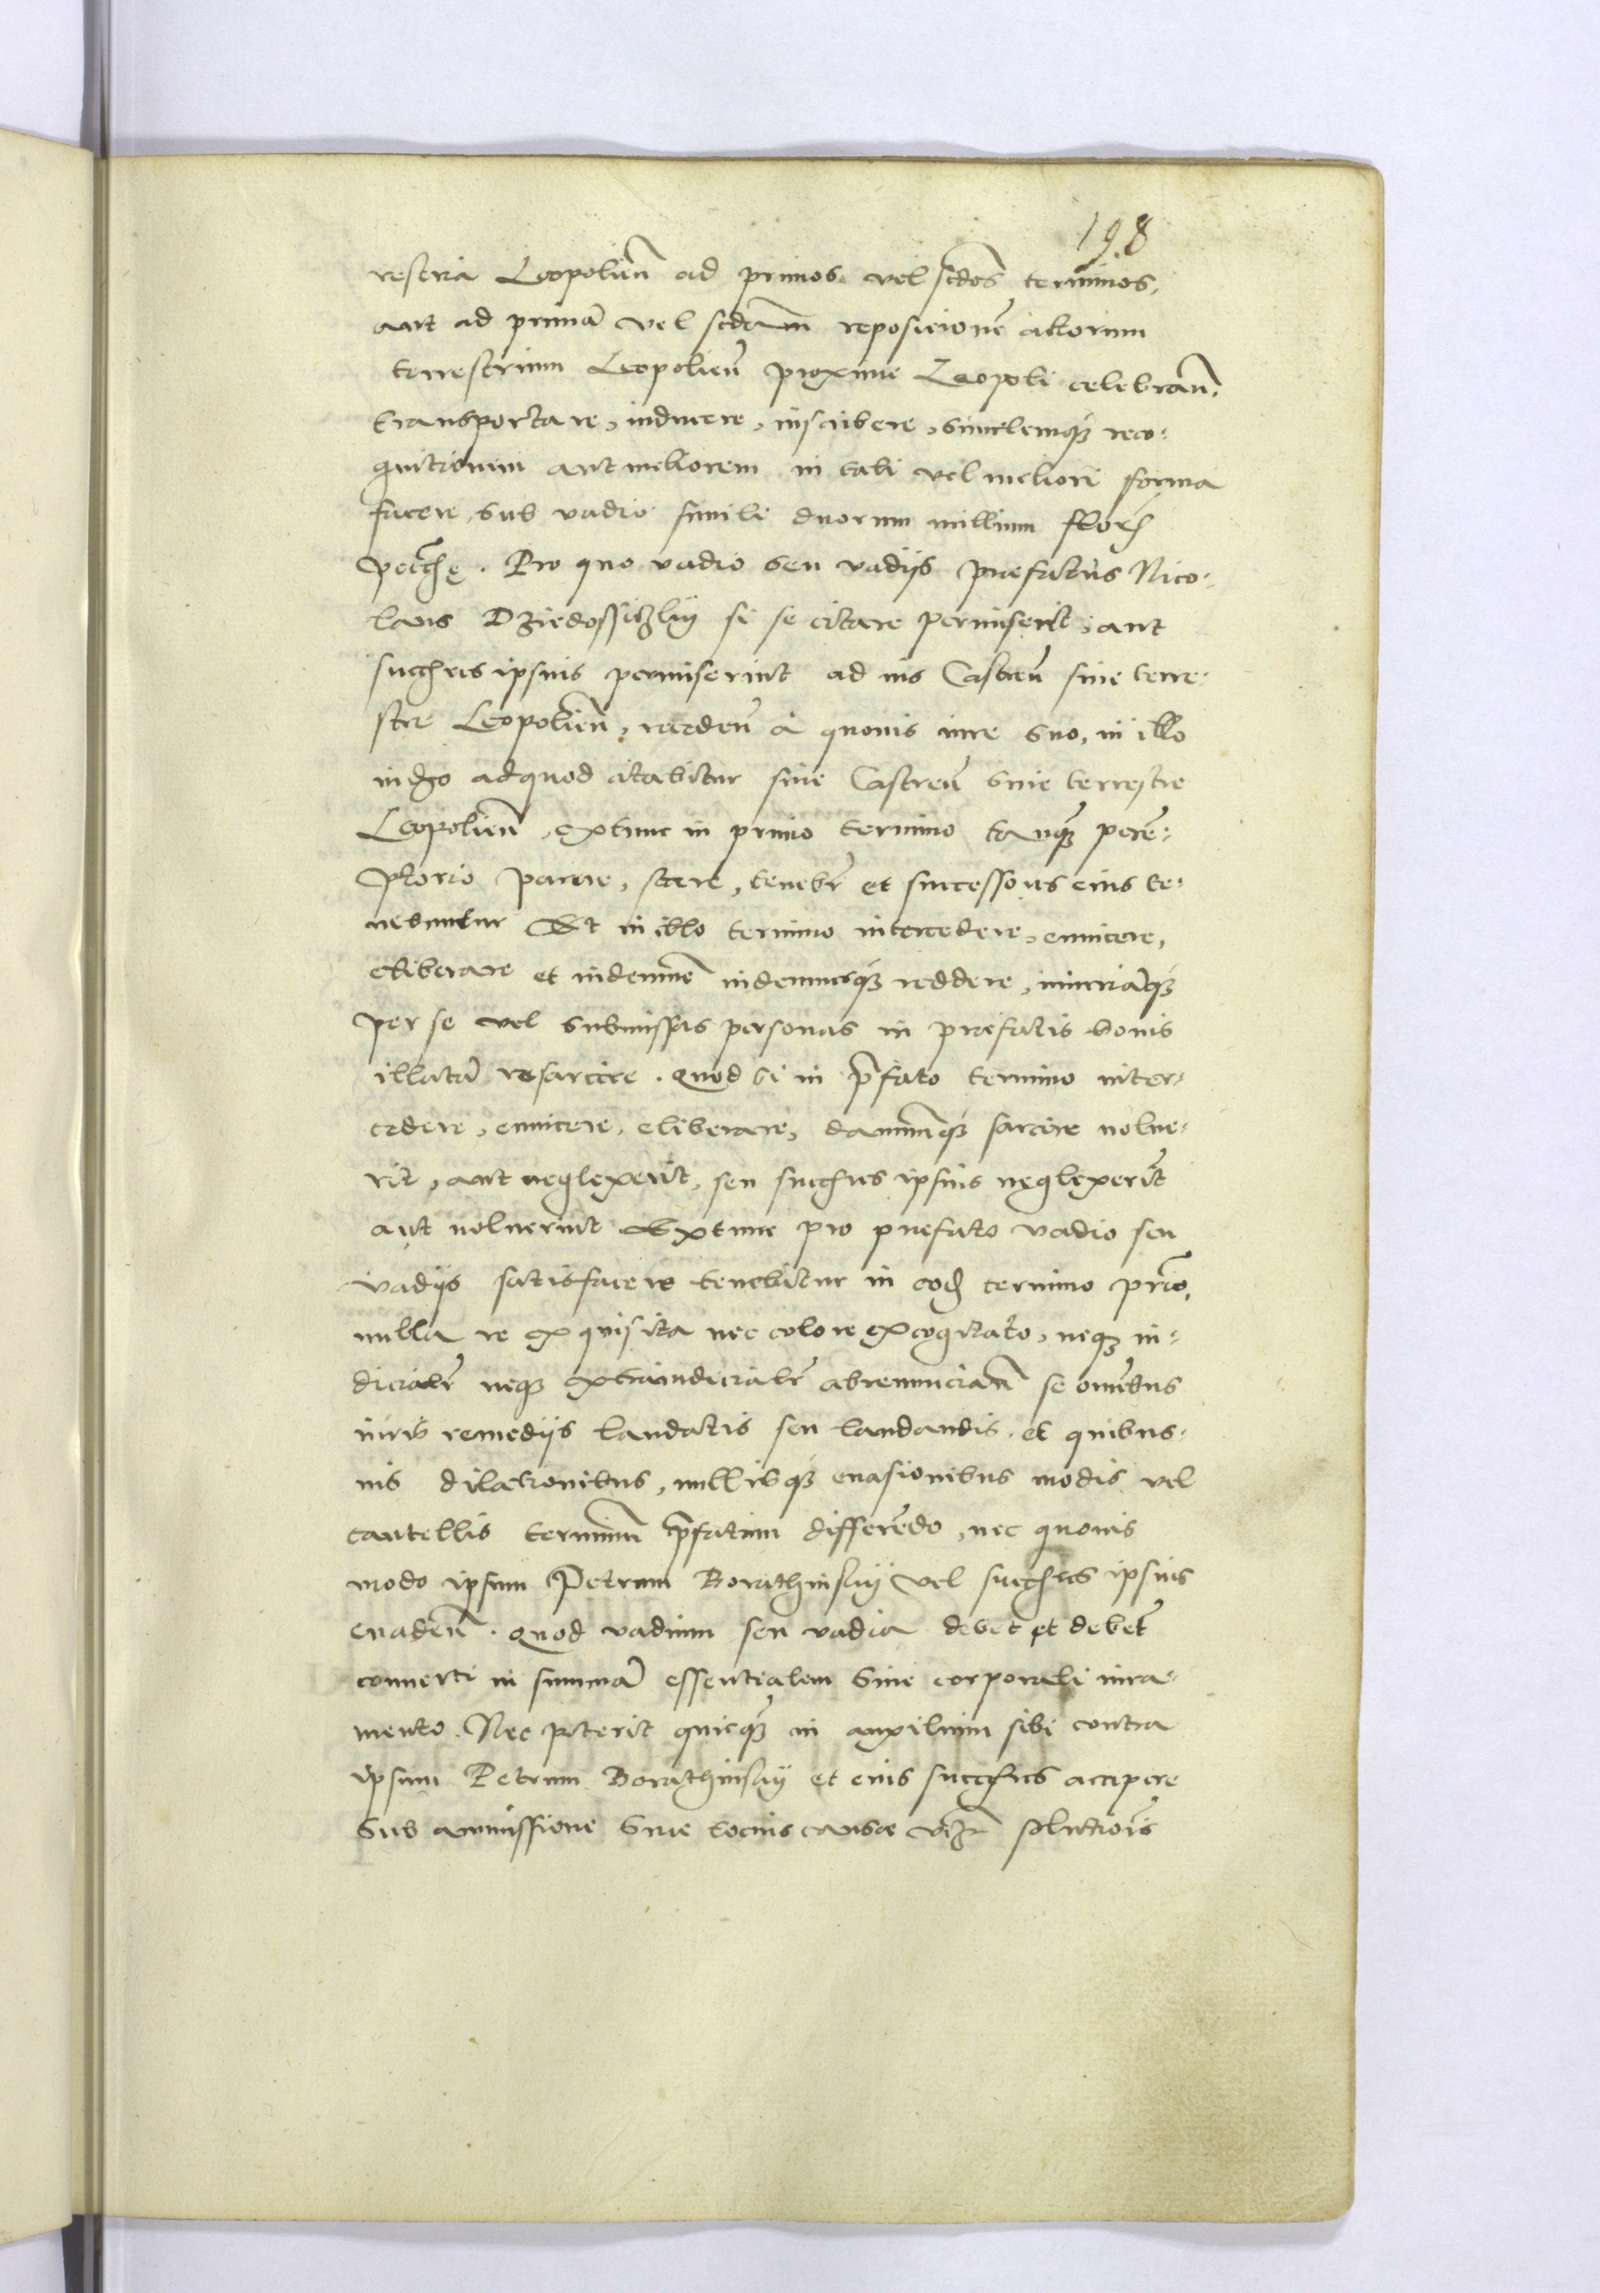 198
restria Leopolien̄ ad primos vel scdōs terminos,
aut ad primā vel scdam̄ reposicionē actorum
terrestrium Leopolien̄ proxime Leopoli celebran̄,
transportare, inducere, inscribere, similemq₃ reco-
gnitionem aut meliorem in tali vel meliori forma
facere, sub vadio simili duorum millium floren̄
. Pro quo vadio seu vadijs praefatus Nico-
laus si se citare permiserit, aut
succ̄res ipsius permiserint ad ius Castren̄ siue terre-
stre Leopolien̄, receden̄ à quouis iure suo, in illo
iudicio ad quod citabitur siue Castren̄ siue terrestre
Leopolien̄, extunc in primo termino tanq₃ perē-
ptorio parere, stare, tenebr̄ et successores eius te-
nebuntur Et in illo termino intercedere, euincere,
eliberare et indemnē indemnesq₃ reddere, iniuriāq₃
per se vel submissas personas in praefatis bonis
illatā resarcire. Quod si in p̄fato termino inter-
cedere, euincere, eliberare, damnūq₃ sarcire nolue-
rit, aut neglexerit, seu succ̄res ipsius neglexerīt
aut noluerint Extunc pro praefato vadio seu
vadijs satisfacere tenebitur in eodē termino prīo,
nulla re exquisita nec colore excogitato, neq₃ iu-
dicialr̄ neq₃ extraiudicialr̄ abrenuncian̄ se omībus
iuris remedijs laudatis seu laudandis, et quibus-
uis dilationibus, nullisq₃ euasionibus modis vel
cautellis terminū p̄fatum differēdo, nec quouis
modo ipsum Petrum Borathinsky vel succ̄res ipsius
euaden̄. Quod vadium seu vadia debet et debēt
conuerti in summā essentialem Sine corporali iura-
mento. Nec poterit quicq₃ in auxilium sibi contra
ipsum Petrum Borathinsky et eius succ̄res accipere
Sub ammissione siue tocius causae vīz solutiōis